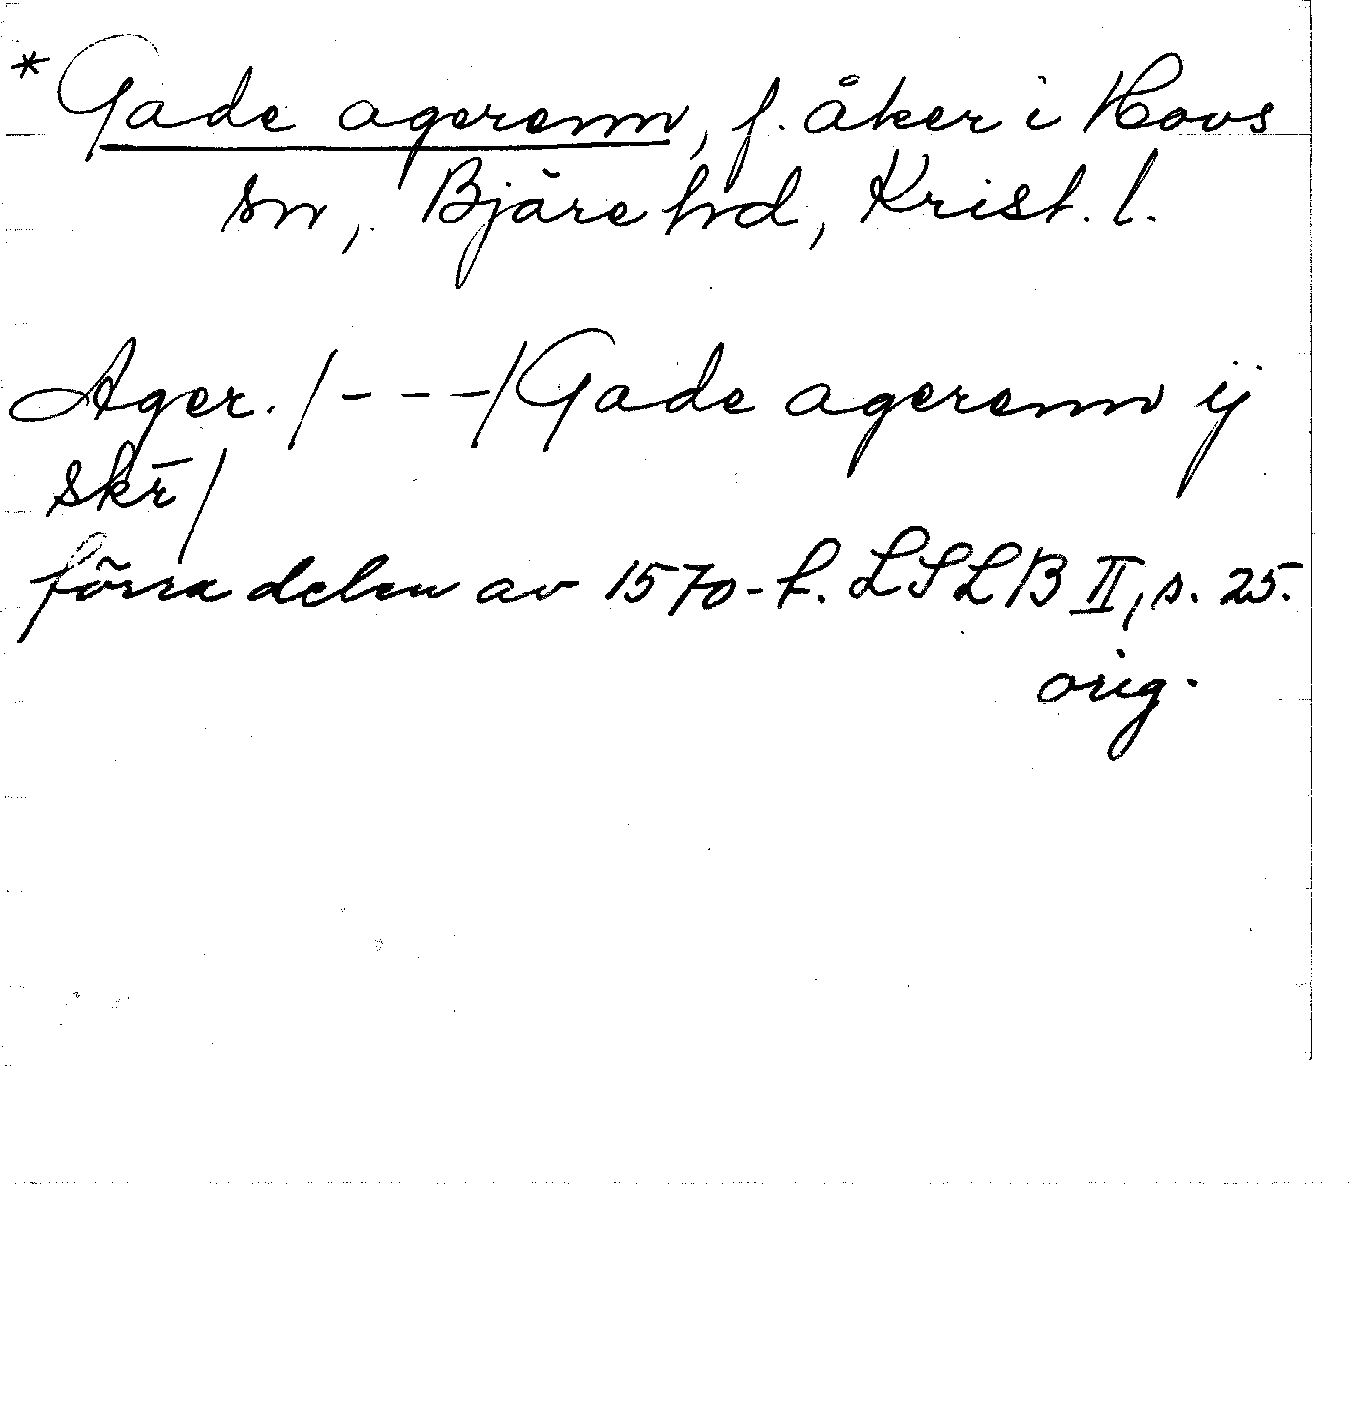 * Gade agerenn, f. åker i Hovs
sn, Bjäre hd, Krist. l.
Ager. /---/ Gade agerenn ij
skr̄/
förra delen av 1570-t. LSLB II, s. 25.
orig.